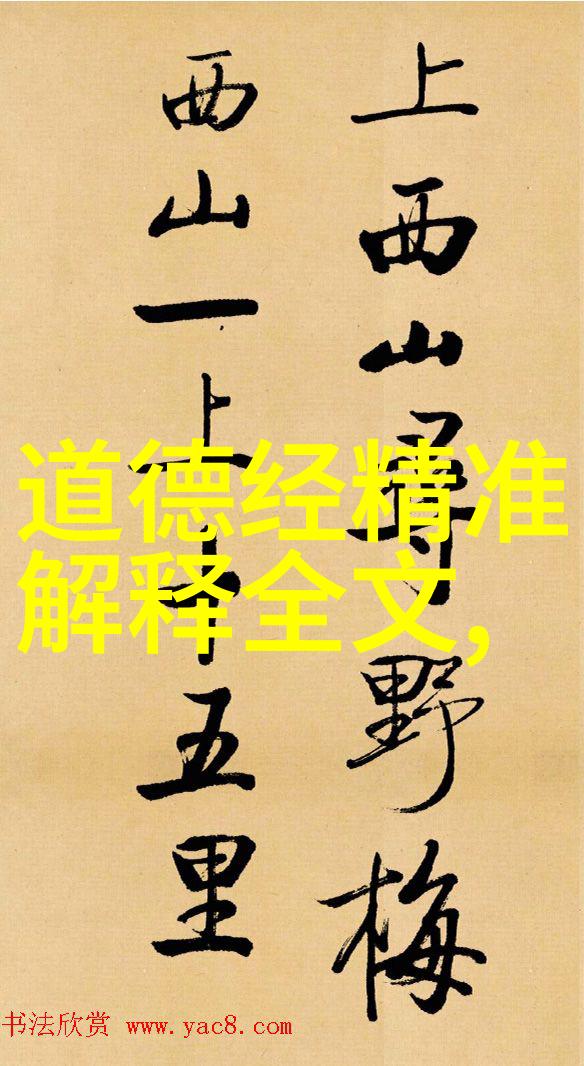 上西山尋野梅
西山一上十五里
道德经精准
解释全文,
书法欣赏 www.yac8.com